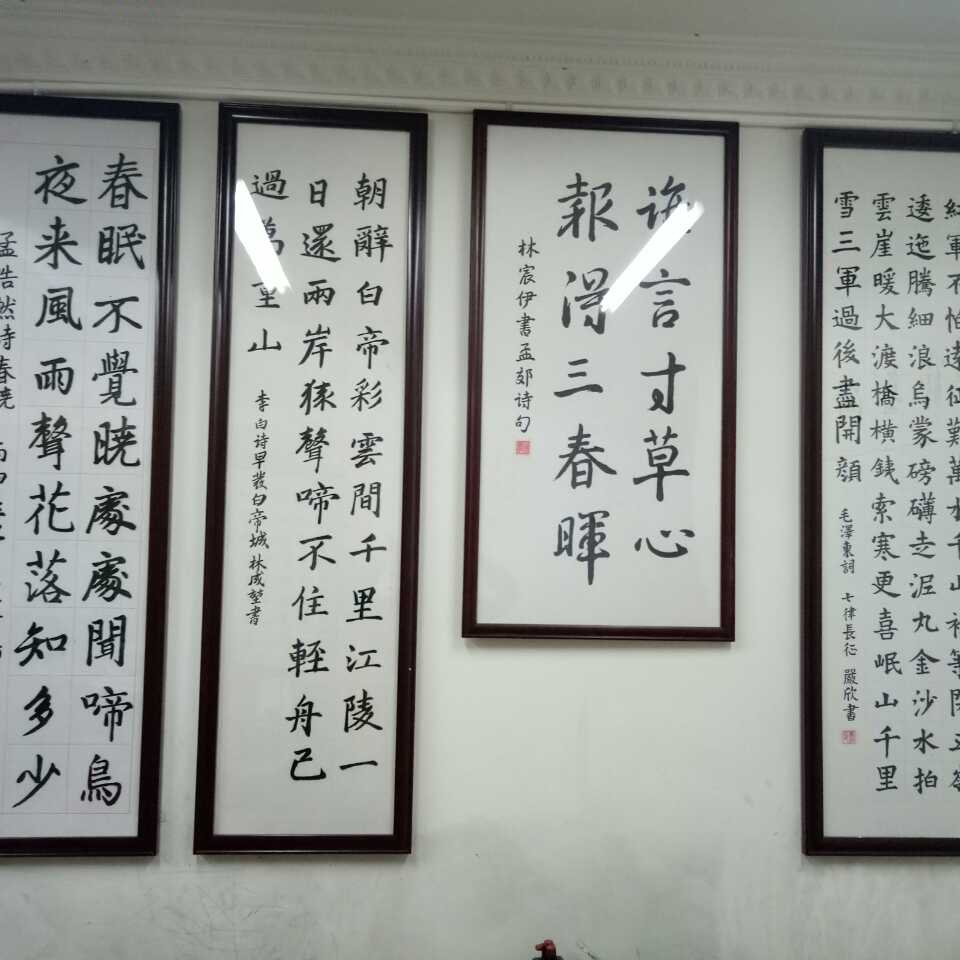 春眠不覺曉處處聞啼鳥
夜来風雨聲花落知多少
孟浩然诗春曉
朝辭白帝彩雲間千里江陵一
日還兩岸猿聲啼不住輕舟已
過萬重山
李白诗早發白帝城 林成堃書
谁言寸草心
報得三春暉
林宸伊書孟郊诗句
紅軍不怕遠征難萬水千山
逶迤騰細浪烏蒙磅礴走泥丸金沙水拍
雲崖暖大渡橋橫鉄索寒更喜岷山千里
雪三軍過後盡開顔
毛澤東詞 七律長征 嚴欣書